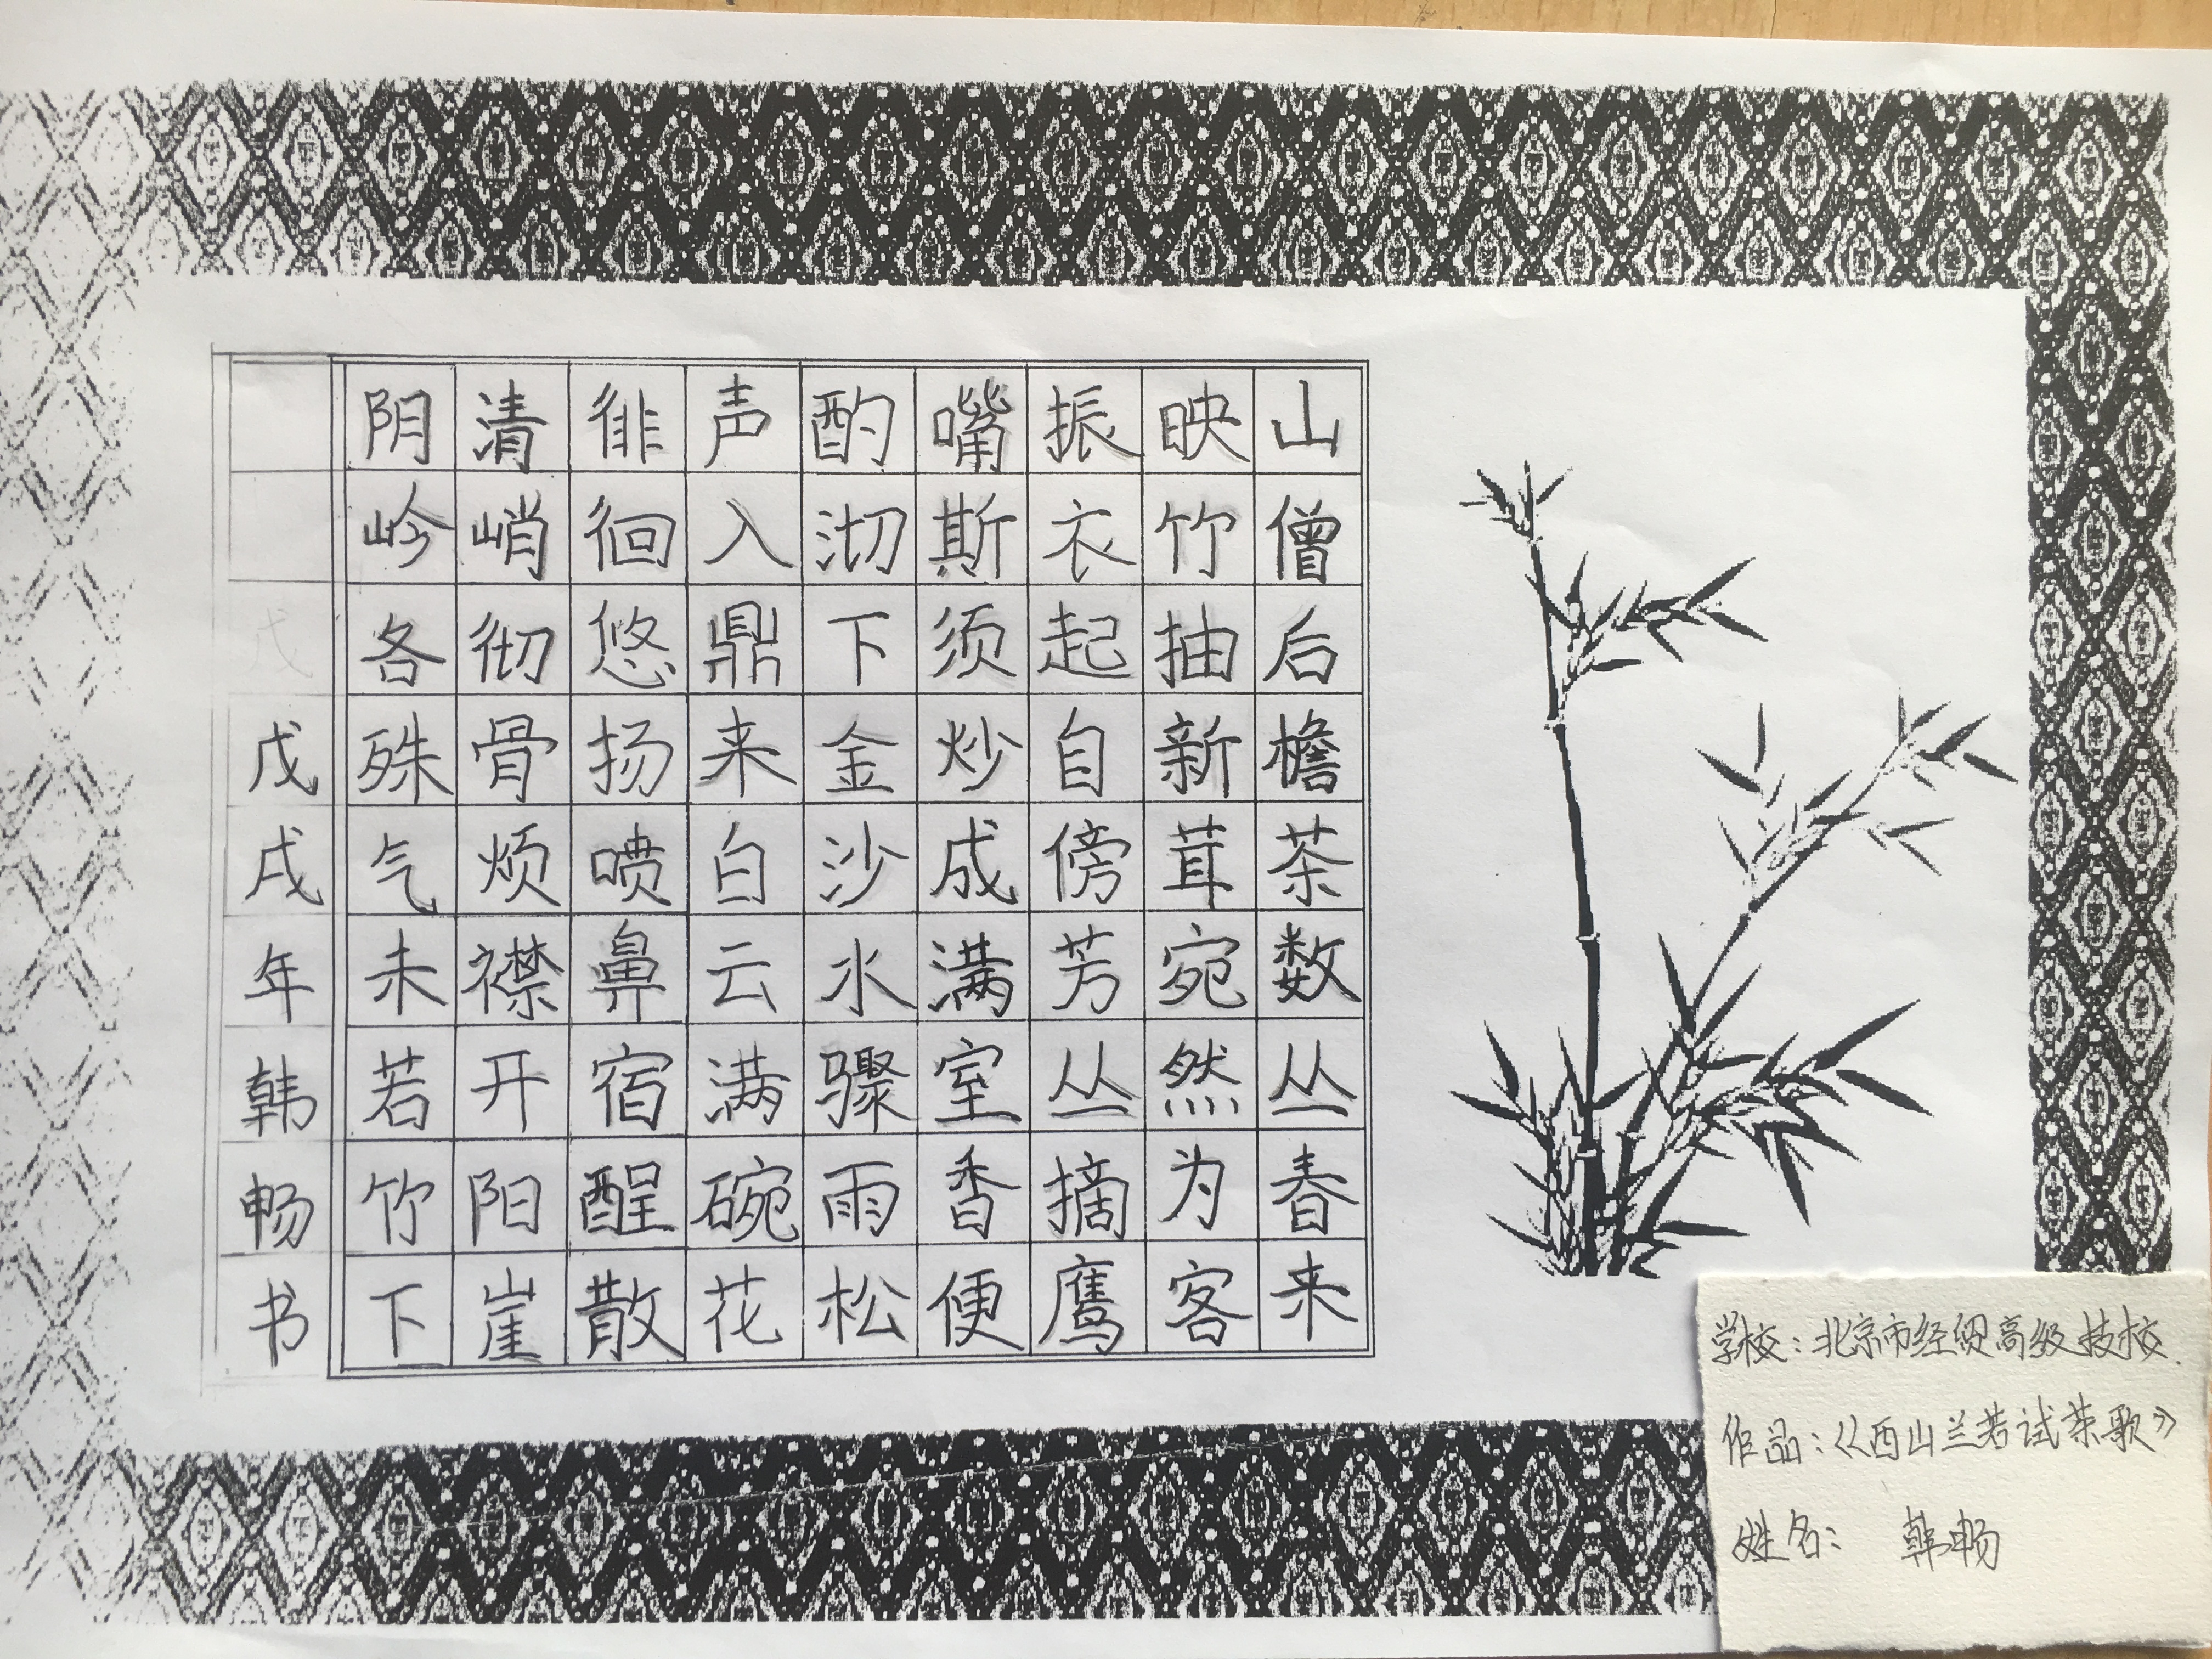 山僧后檐茶数丛春来
映竹抽新茸宛然为客
振衣起自傍芳丛摘鹰
嘴斯须炒成满室香便
酌沏下金沙水骤雨松
声入鼎来白云满碗花
徘徊悠扬喷鼻宿酲散
清峭彻骨烦襟开阳崖
阴岭各殊气未若竹下
戊戌年韩畅书
学校：北京市经贸高级技校.
作品：《西山兰若试茶歌》
姓名： 韩畅